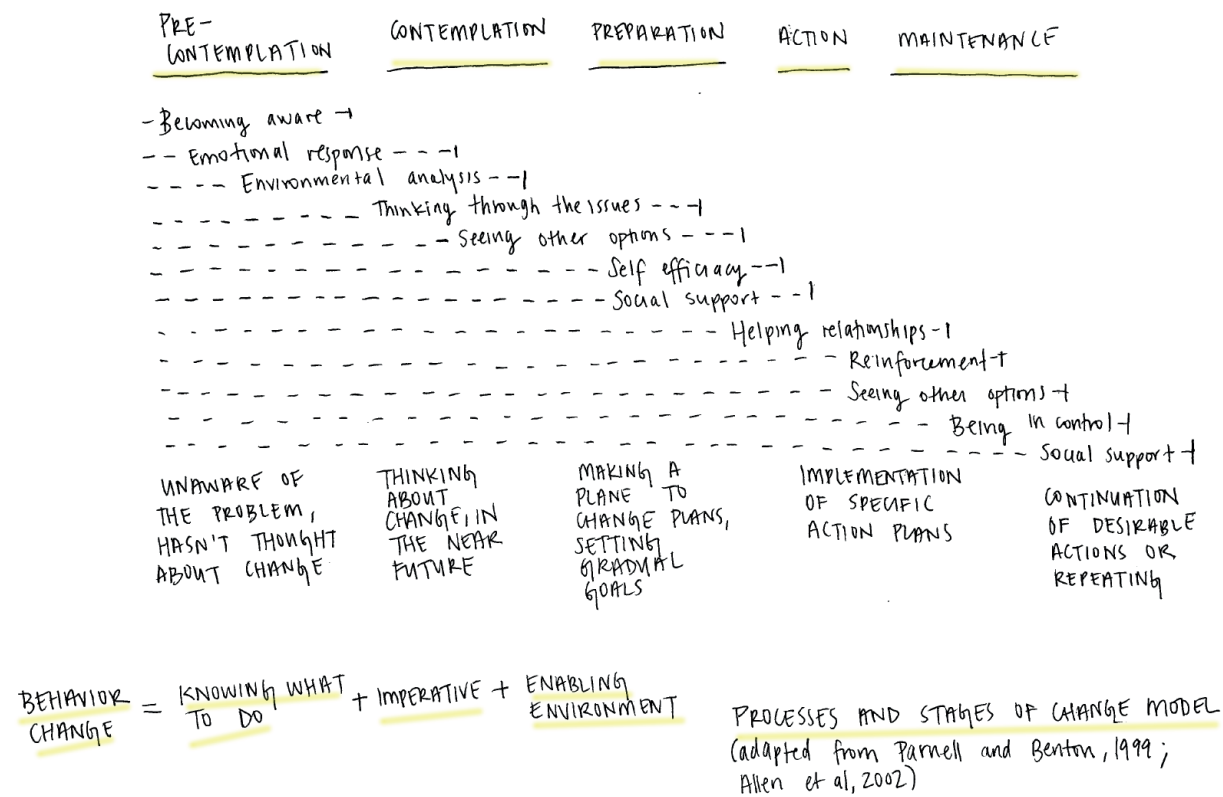 PRE-
CONTEMPLATION
CONTEMPLATION
PREPARATION
ACTION
MAINTENANCE
- Becoming aware -|
-- Emotional response ---|
---- Environmental analysis --|
--------- Thinking through the issues ---|
----------- Seeing other options ---|
---------------- Self efficacy --|
----------------- Social support --|
-------------------- Helping relationships -|
----------------------- Reinforcement -|
------------------------ Seeing other options -|
-------------------------- Being in control -|
----------------------------- Social support -|
UNAWARE OF
THE PROBLEM,
HASN'T THOUGHT
ABOUT CHANGE
THINKING
ABOUT
CHANGE, IN
THE NEAR
FUTURE
MAKING A
PLANE TO
CHANGE PLANS,
SETTING
GRADUAL
GOALS
IMPLEMENTATION
OF SPECIFIC
ACTION PLANS
CONTINUATION
OF DESIRABLE
ACTIONS OR
REPEATING
BEHAVIOR
CHANGE
=
KNOWING WHAT
TO DO
+ IMPERATIVE +
ENABLING
ENVIRONMENT
PROCESSES AND STAGES OF CHANGE MODEL
(adapted from Parnell and Benton, 1999;
Allen et al, 2002)